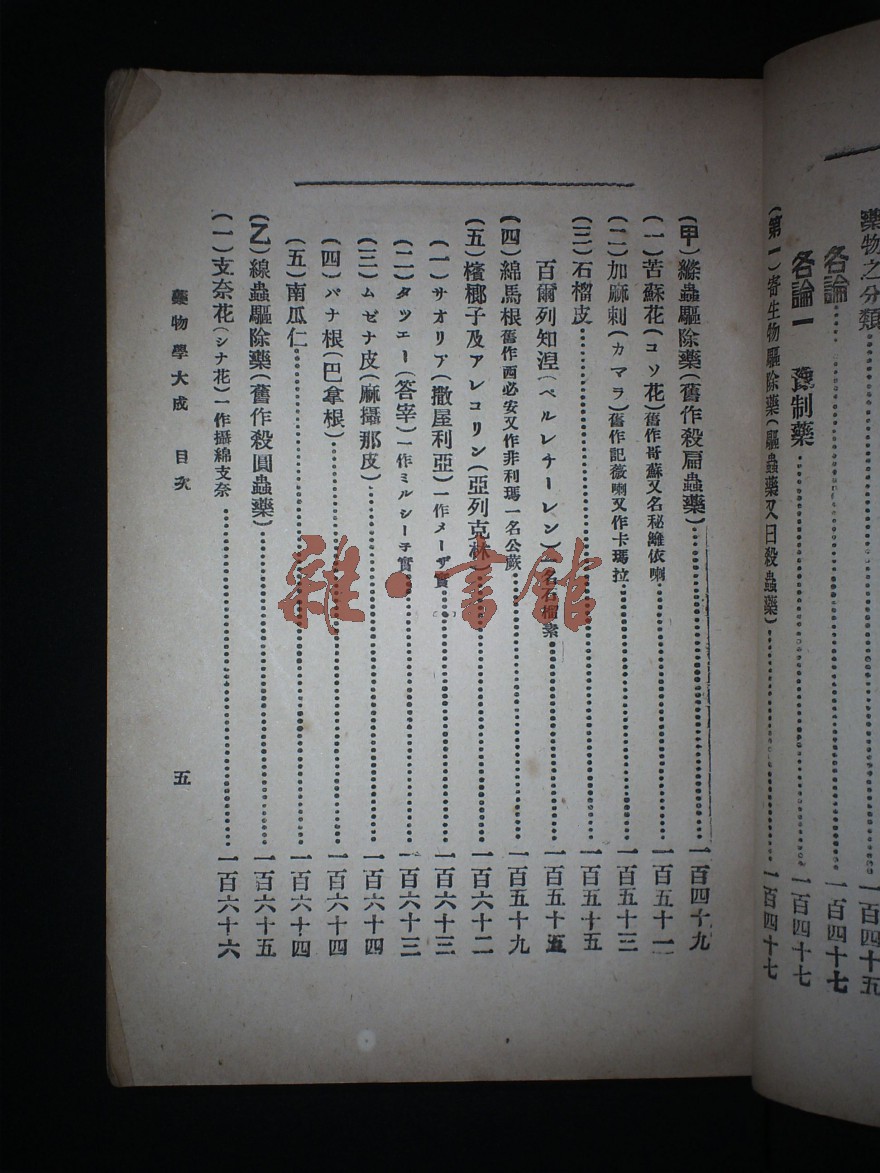 藥物之分類……一百四十五
各論……一百四十七
各論一　豫制藥……一百四十七
(第一)寄生物驅除藥(驅蟲藥又曰殺蟲藥)……一百四十七
(甲)縧蟲驅除藥(舊作殺扁蟲藥)……一百四十九
(一)苦蘇花(コソ花)舊作哥蘇又名秘維依喇……一百五十一
(二)加麻剌(カマラ)舊作記薇喇又作卡瑪拉……一百五十三
(三)石榴皮……一百五十五
百爾列知涅(ペルレチーレン)一名石榴素……一百五十五
(四)綿馬根舊作西必安又作非利瑪一名公蕨……一百五十九
(五)檳榔子及アレコリン(亞列克林)……一百六十二
(一)サオリア(撒屋利亞)一作メーザ實……一百六十三
(二)タツエー(答宰)一作ミルシーテ實……一百六十三
(三)ムゼナ皮(麻攝那皮)……一百六十四
(四)パナ根(巴拿根)……一百六十四
(五)南瓜仁……一百六十四
(乙)線蟲驅除藥(舊作殺圓蟲藥)……一百六十五
(一)支奈花(シナ花)一作攝綿支奈……一百六十六
藥物學大成　目次
五
雜·書館